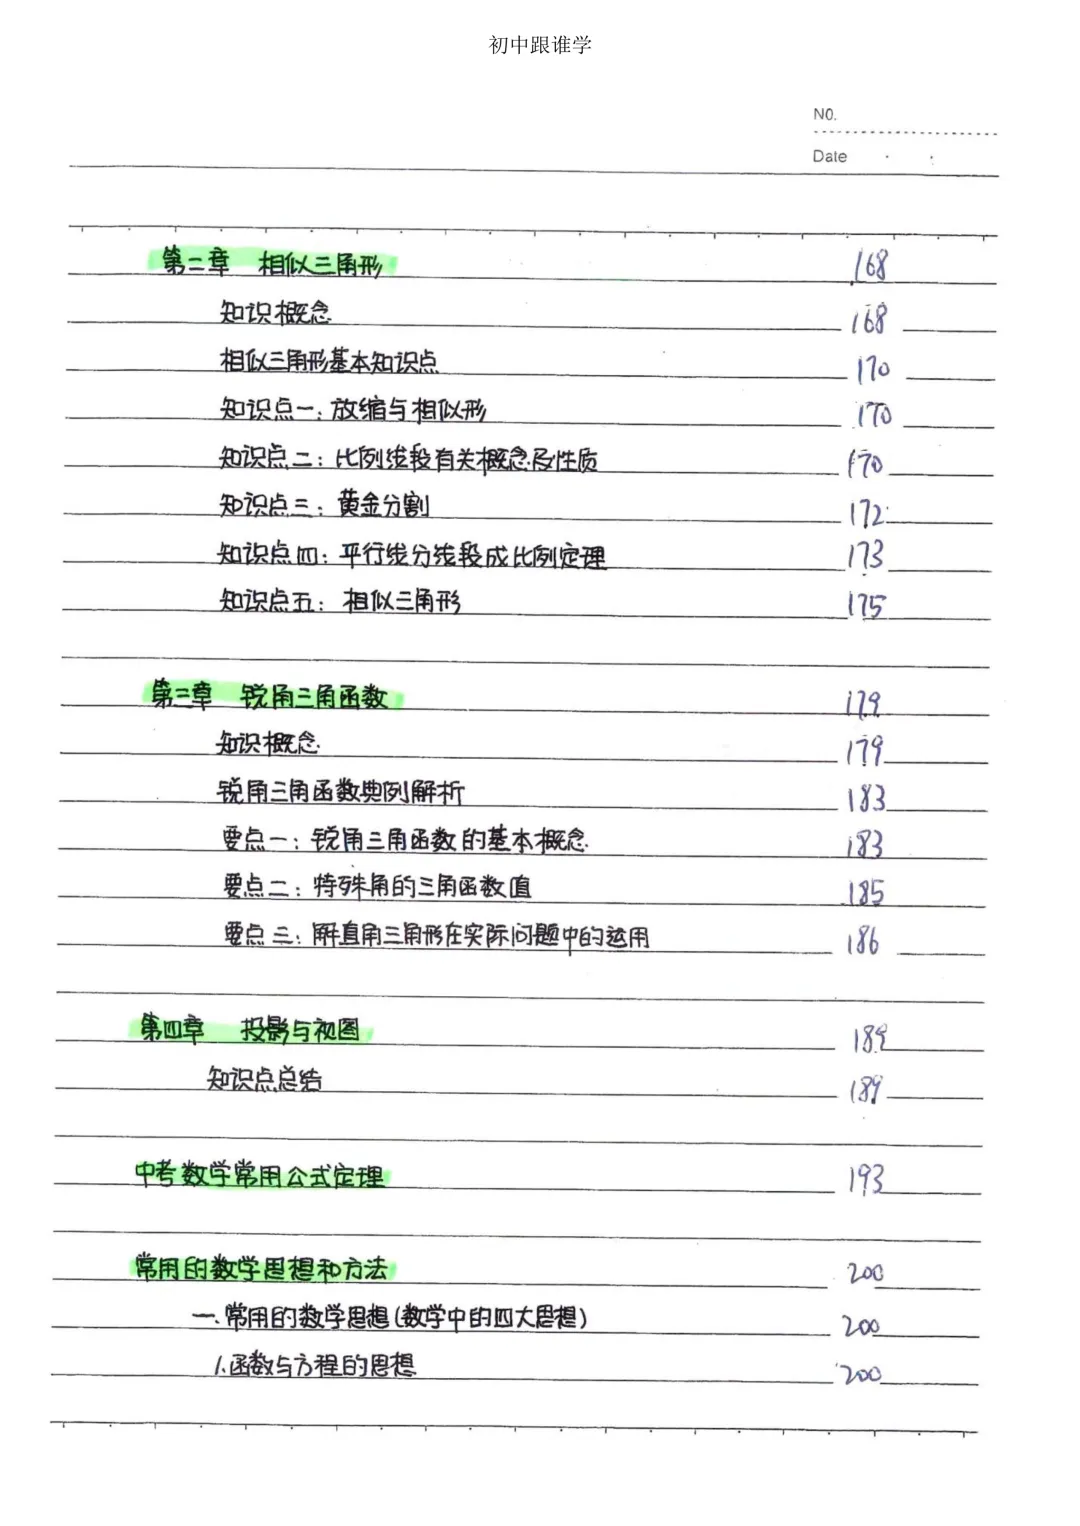 初中跟谁学
NO.
Date
第二章 相似三角形 168
知识概念 168
相似三角形基本知识点 170
知识点一：放缩与相似形 170
知识点二：比例线段有关概念及性质 170
知识点三：黄金分割 172
知识点四：平行线分线段成比例定理 173
知识点五：相似三角形 175
第三章 锐角三角函数 179
知识概念 179
锐角三角函数典例解析 183
要点一：锐角三角函数的基本概念 183
要点二：特殊角的三角函数值 185
要点三：解直角三角形在实际问题中的运用 186
第四章 投影与视图 189
知识点总结 189
中考数学常用公式定理 193
常用的数学思想和方法 200
一.常用的数学思想(数学中的四大思想) 200
1.函数与方程的思想 200